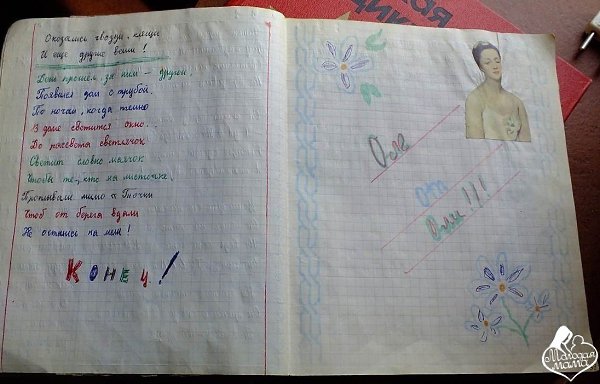 Оказались гвозди, клещи
И еще другие вещи!
День прошёл, за ним – другой.
Появился дом с трубой.
По ночам, когда темно
В доме светится окно...
До рассвета светлячок
Светит словно маячок
Чтобы те, кто на листочке,
Проплывали мимо
Чтоб от берега вдали
Не остались на мели!
КОНЕЦ!
Для
Оли!!!
Молодая
мама